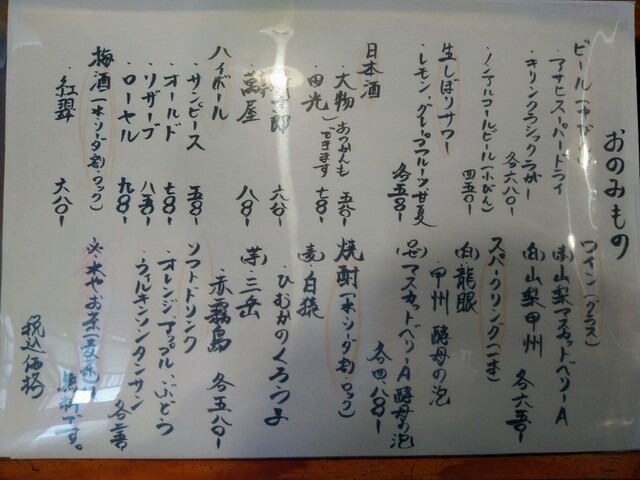 おのみもの
ビール(中びん)
・アサヒスーパードライ
・キリンクラシックラガー
各六八〇-
・ノンアルコールビール(小びん)
四五〇-
生しぼりサワー
・レモン、グレープフルーツ、甘夏
各五五〇-
日本酒
・大物(あつかんもできます)
五五〇-
・田光
七八〇-
六六〇-
蔦屋
八八〇-
ハイボール
・サンピース
五五〇-
・オールド
七八〇-
・リザーブ
八五〇-
・ローヤル
九八〇-
梅酒(水・ソーダ割・ロック)
・紅翠
六八〇-
ワイン(グラス)
(赤)山梨マスカットベリーA
(白)山梨甲州
各六五〇-
スパークリング(一本)
(白)龍眼
・甲州 酵母の泡
(ロゼ)マスカットベリーA酵母の泡
各四、八八〇-
焼酎(水・ソーダ割・ロック)
(麦)白猿
・ひむかのくろうま
(芋)三岳
・赤霧島
各五八〇-
ソフトドリンク
・オレンジ、アップル、ぶどう
・ウィルキンソンタンサン
※水やお茶(麦茶)は
無料です。
税込価格